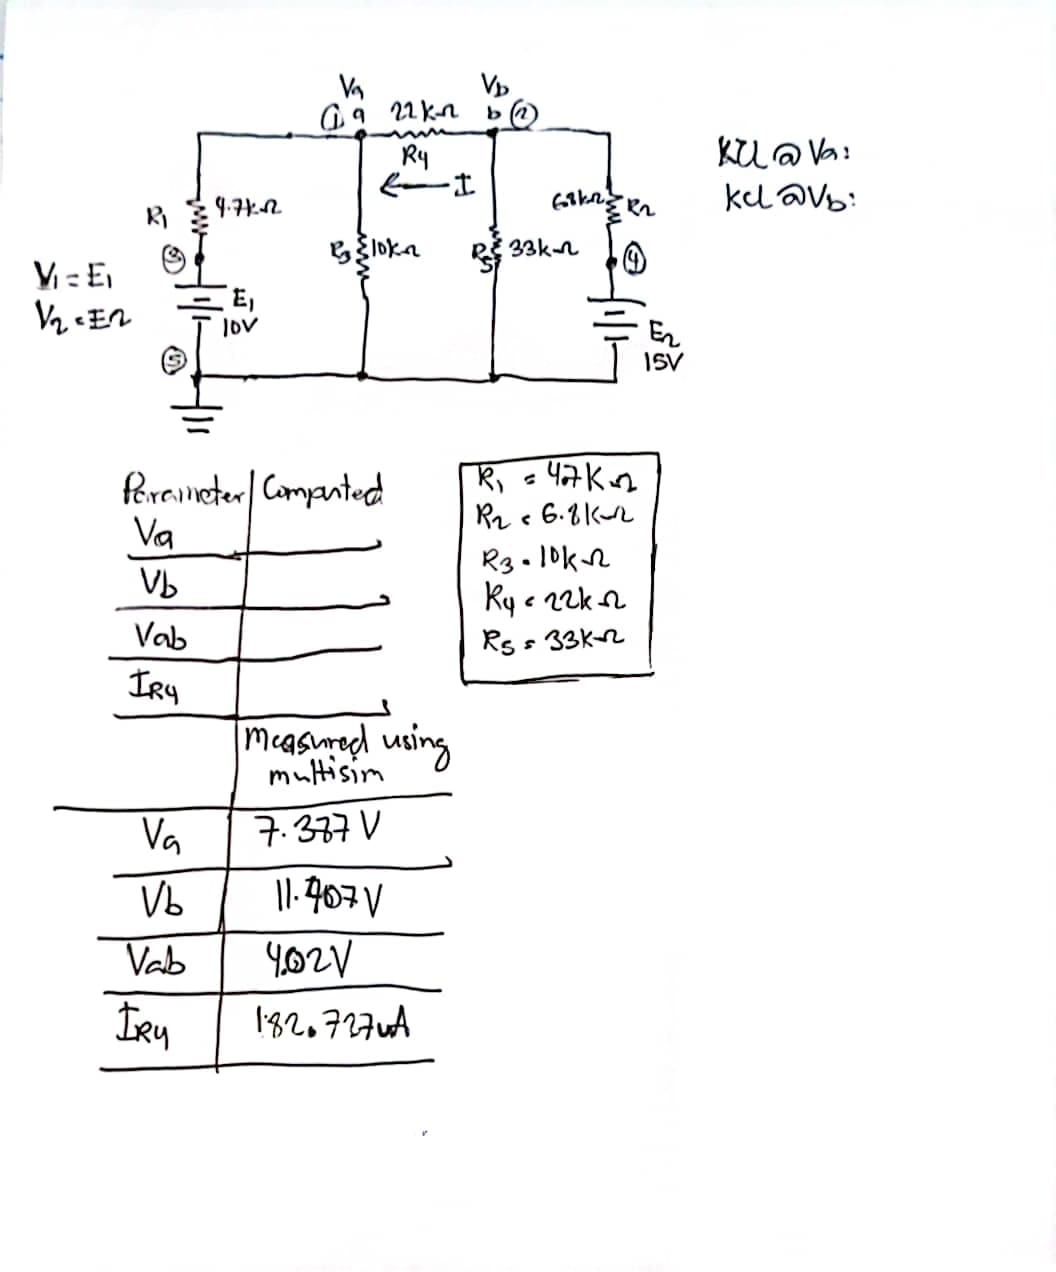 Va Vb
① a 22kΩ b ②
R4
← I
R1 4.7kΩ
6.8kΩ R2
③ R3 10kΩ R5 33kΩ ④
V1 = E1
V2 = E2
E1
10V
E2
15V
⑤
KCL @ Va:
KCL @ Vb:
Parameter Computed
Va
Vb
Vab
IR4
R1 = 4.7KΩ
R2 = 6.8KΩ
R3 = 10kΩ
R4 = 22kΩ
R5 = 33KΩ
Measured using
multisim
Va 7.387 V
Vb 11.407 V
Vab 4.02V
IR4 182.727uA